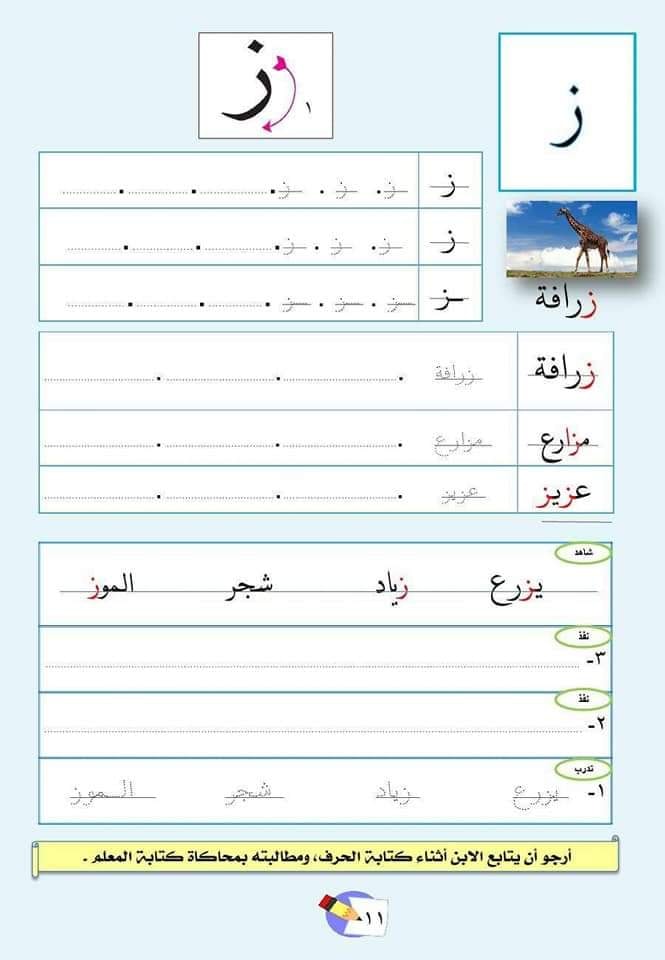 ز
ز ١
ز ز . ز . ز
ز ز . ز . ز
ـز ـز . ـز . ـز
زرافة
زرافة زرافة
مزارع مزارع
عزيز عزيز
شاهد
يزرع زياد شجر الموز
نفذ
٣-
نفذ
٢-
تدرب
١- يزرع زياد شجر الموز
أرجو أن يتابع الابن أثناء كتابة الحرف، ومطالبته بمحاكاة كتابة المعلم .
١١